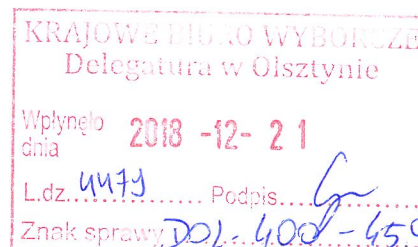 KRAJOWE BIURO WYBORCZE
Delegatura w Olsztynie
Wpłynęło
dnia 2018 -12- 21
L.dz. 4479 Podpis
Znak sprawy DOL-400-459